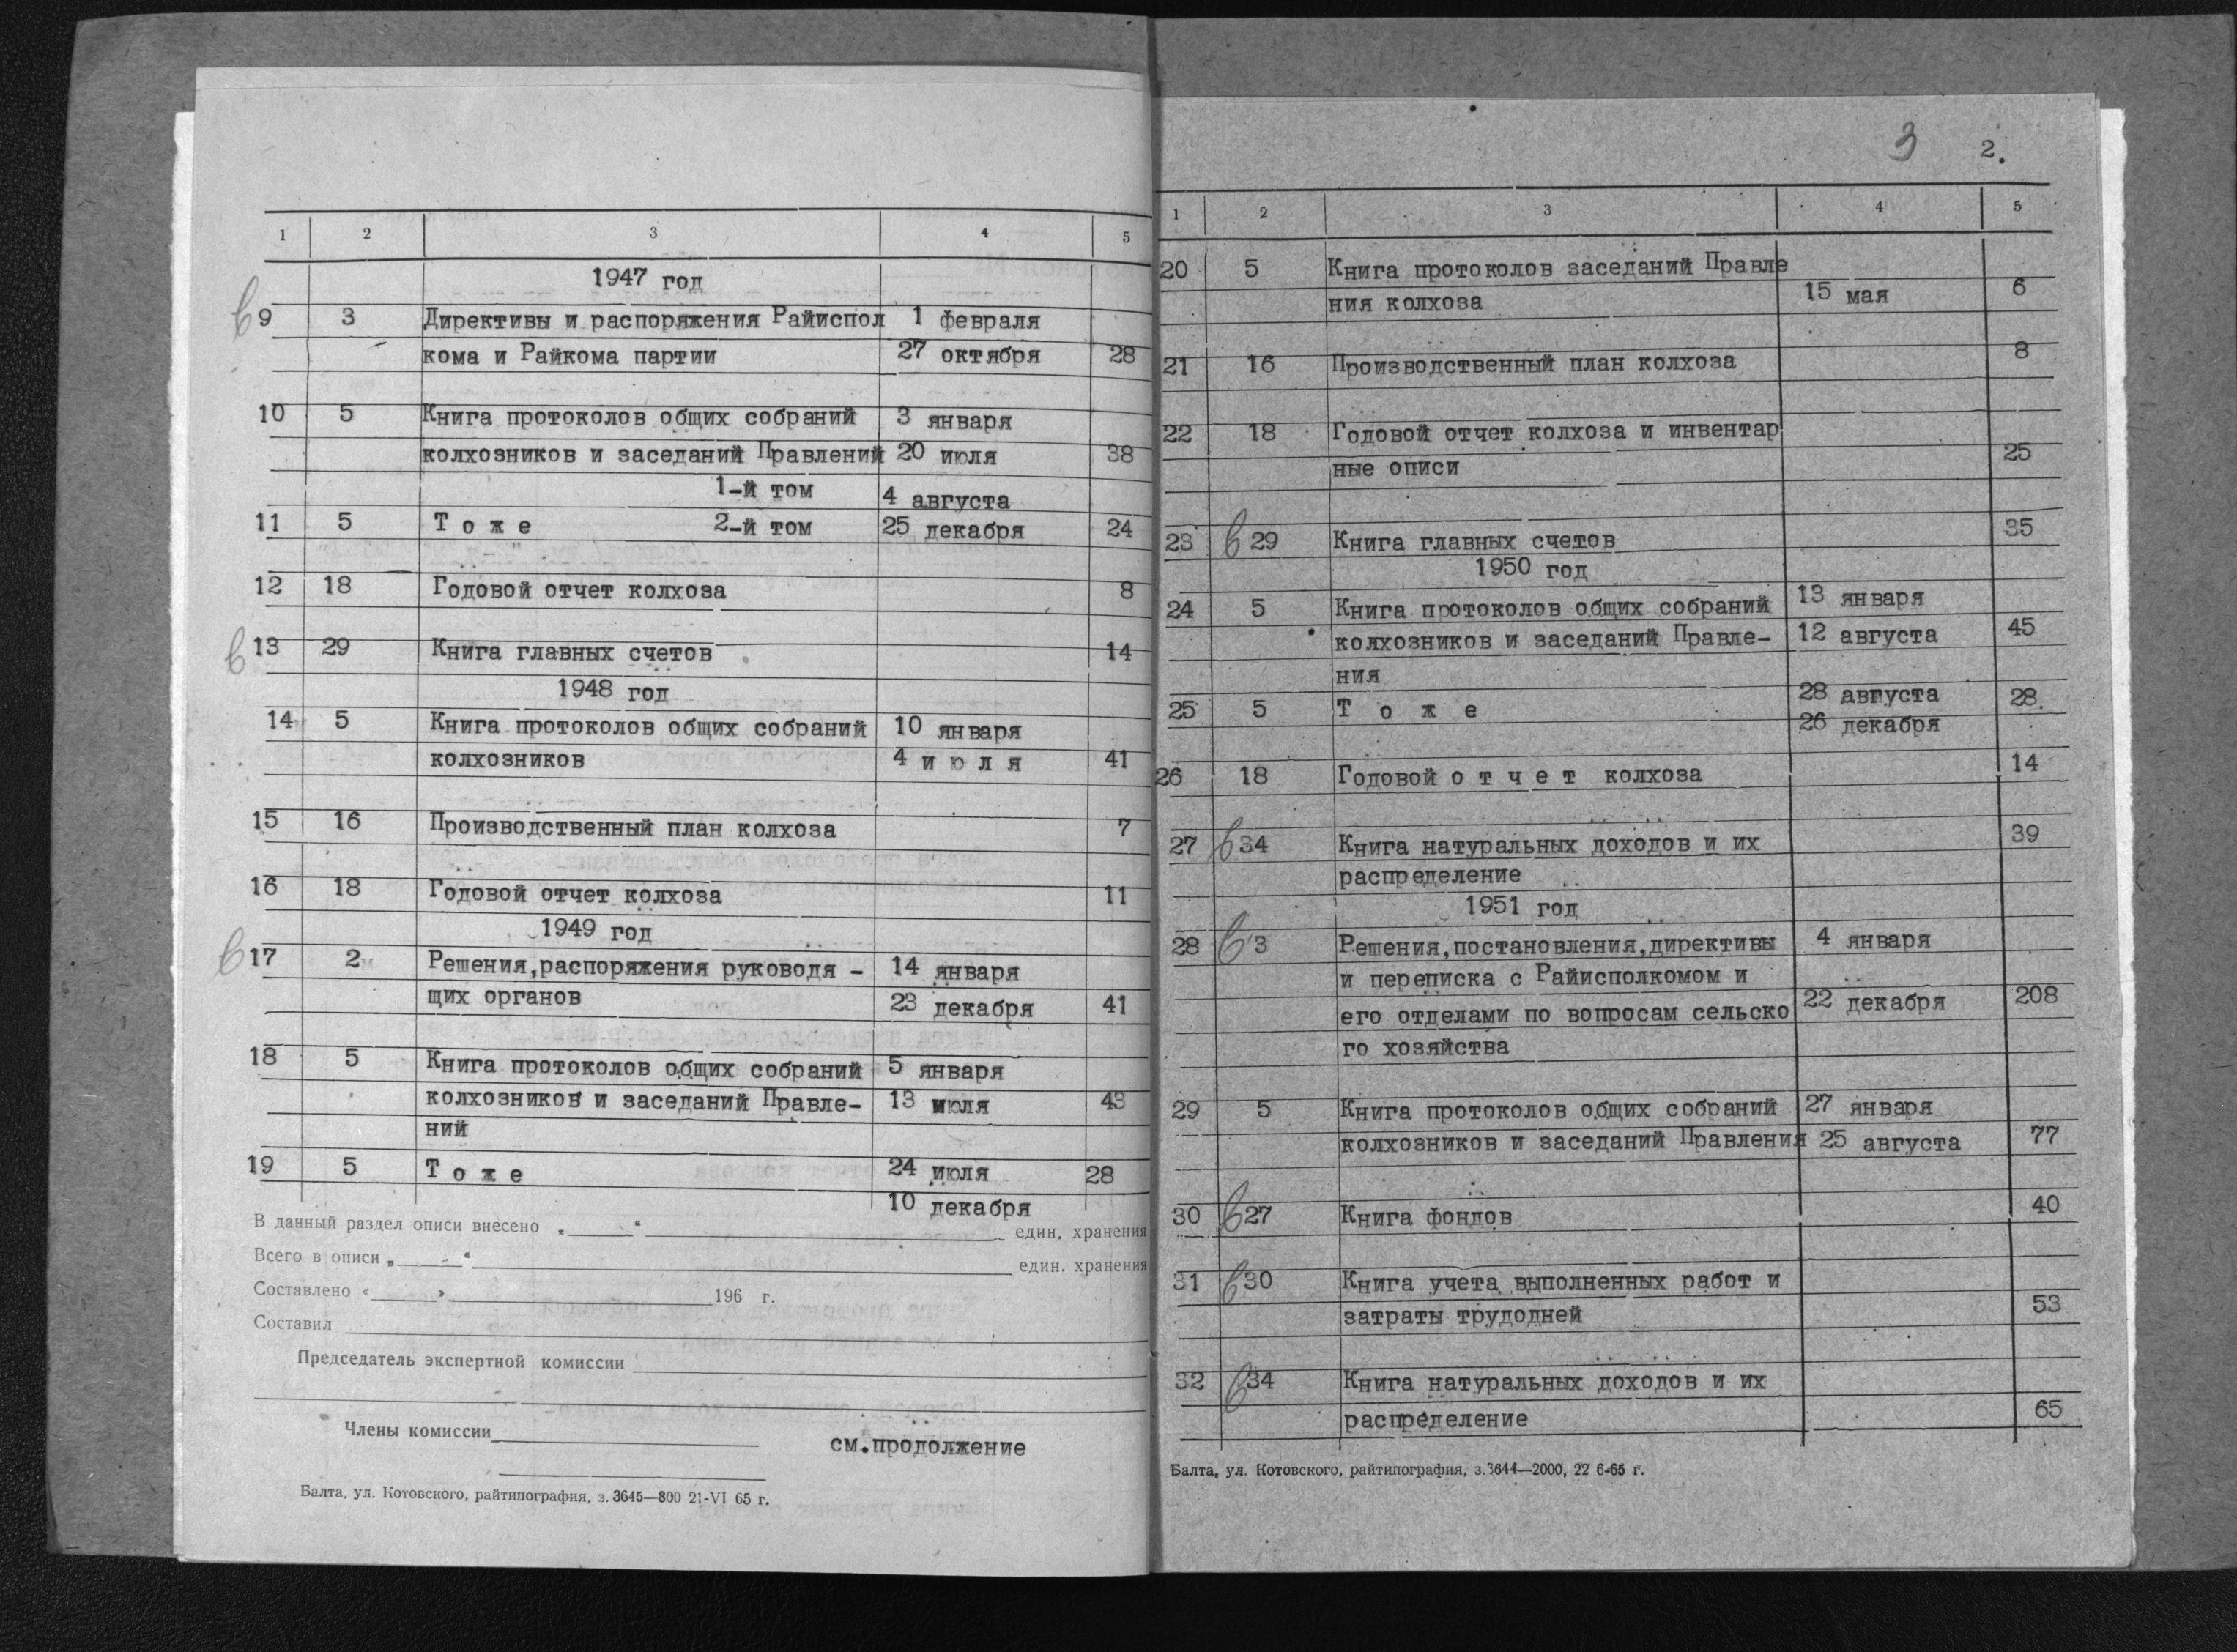 1 2 3 4 5
1947 год
в 9 3 Директивы и распоряжения Райиспол 1 февраля
кома и Райкома партии 27 октября 28
10 5 Книга протоколов общих собраний 3 января
колхозников и заседаний Правлений 20 июля 38
1-й том 4 августа
11 5 Т о ж е 2-й том 25 декабря 24
12 18 Годовой отчет колхоза 8
в 13 29 Книга главных счетов 14
1948 год
14 5 Книга протоколов общих собраний 10 января
колхозников 4 и ю л я 41
15 16 Производственный план колхоза 7
16 18 Годовой отчет колхоза 11
1949 год
в 17 2 Решения,распоряжения руководя - 14 января
щих органов 23 декабря 41
18 5 Книга протоколов общих собраний 5 января
колхозников и заседаний Правле- 13 июля 43
ний
19 5 Т о ж е 24 июля 28
10 декабря
В данный раздел описи внесено „ “ един. хранения
Всего в описи „ “ един. хранения
Составлено « » 196 г.
Составил
Председатель экспертной комиссии
Члены комиссии
см.продолжение
Балта, ул. Котовского, райтипография, з. 3645—800 21-VI 65 г.
3 2.
1 2 3 4 5
20 5 Книга протоколов заседаний Правле
ния колхоза 15 мая 6
21 16 Производственный план колхоза 8
22 18 Годовой отчет колхоза и инвентар
ные описи 25
23 в 29 Книга главных счетов 35
1950 год
24 5 Книга протоколов общих собраний 13 января
колхозников и заседаний Правле- 12 августа 45
ния
28 августа
25 5 Т о ж е 28.
26 декабря
26 18 Годовой о т ч е т колхоза 14
27 в 34 Книга натуральных доходов и их 39
распределение
1951 год
28 в 3 Решения,постановления,директивы 4 января
и переписка с Райисполкомом и
его отделами по вопросам сельско 22 декабря 208
го хозяйства
29 5 Книга протоколов общих собраний 27 января
колхозников и заседаний Правления 25 августа 77
30 в 27 Книга фондов 40
31 в 30 Книга учета выполненных работ и
затраты трудодней 53
32 в 34 Книга натуральных доходов и их
распределение 65
Балта, ул. Котовского, райтипография, з.3644—2000, 22 6-65 г.